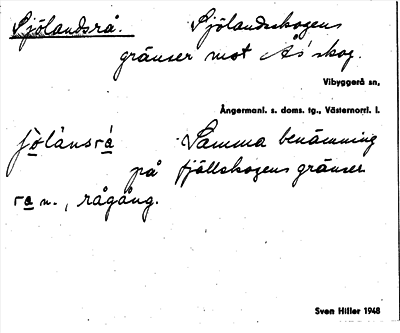 Sjölandsrå. Sjölandsskogens
gränser mot Ås' skog.
Vibyggerå sn,
Ångermanl. s. doms. tg., Västernorrl. l.
jo̲lànsrá̲ Samma benämning
på fjällskogens gränser
ra̲ n., rågång.
Sven Hiller 1948